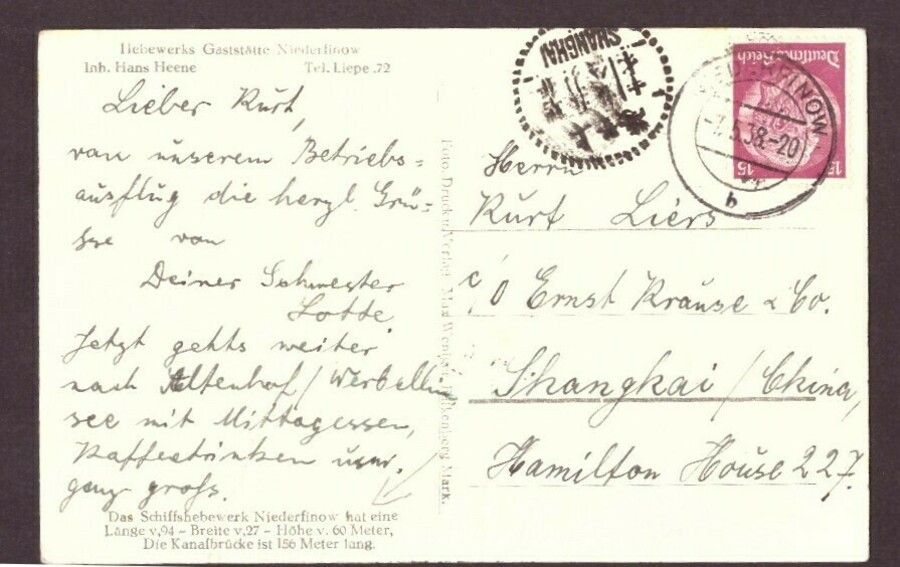 Hebewerks Gaststätte Niederfinow
Inh. Hans Heene Tel. Liepe 72
Lieber Kurt,
von unserem Betriebs=
ausflug die herzl. Grü=
sse von
Deiner Schwester
Lotte
Jetzt gehts weiter
nach Altenhof/Werbellin
see mit Mittagessen,
Kaffeetrinken usw.
ganz gross.
Das Schiffshebewerk Niederfinow hat eine
Länge v. 94 - Breite v. 27 - Höhe v. 60 Meter,
Die Kanalbrücke ist 156 Meter lang.
Foto, Druck u. Verlag
Mark.
SHANGHAI
NIEDERFINOW
5.38.-20
b
Deutsches Reich
15 15
Herrn
Kurt Liers
c/o Ernst Krause & Co.
Shanghai / China,
Hamilton House 227.